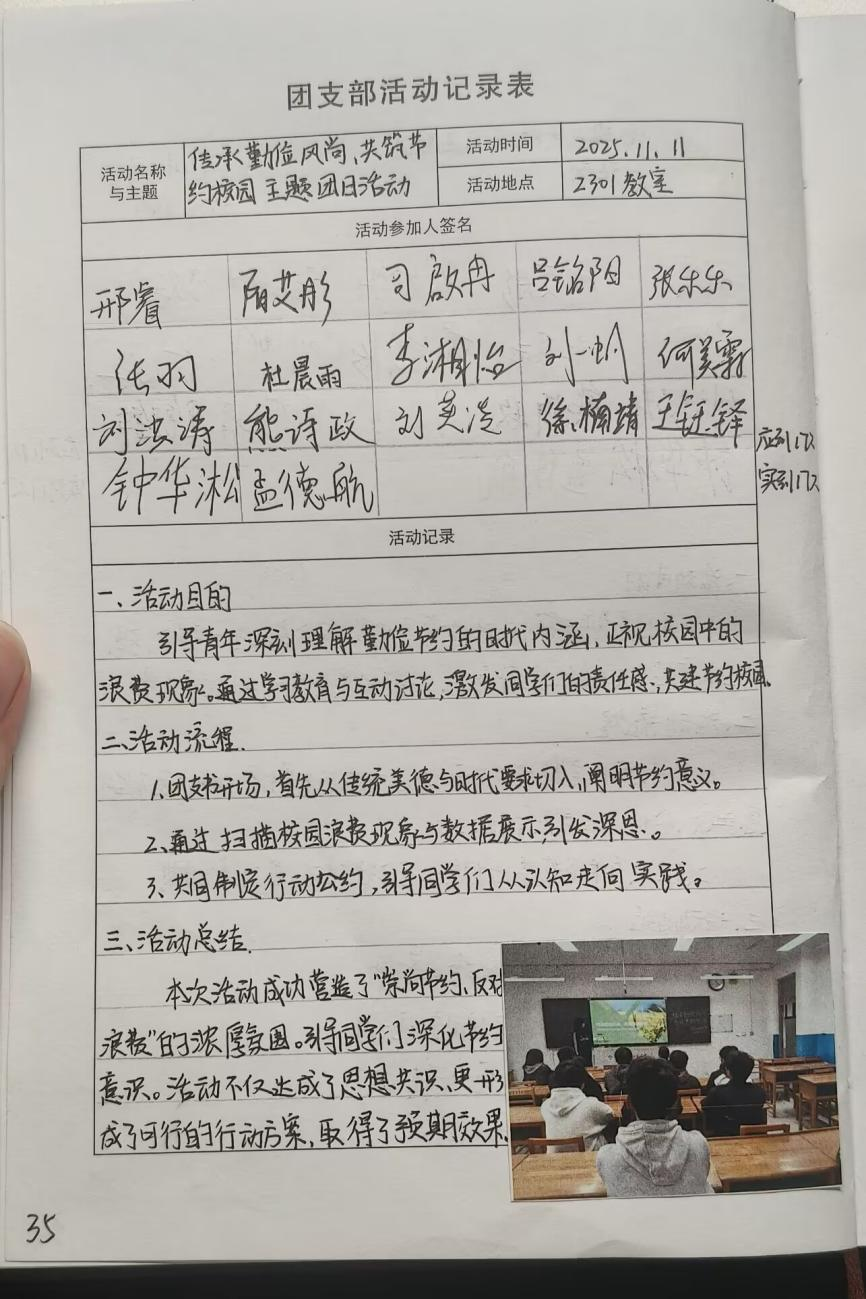 团支部活动记录表
活动名称与主题
传承勤俭风尚、共筑节
约校园 主题团日活动
活动时间
2025.11.11
活动地点
2301教室
活动参加人签名
邢睿 艾彤 司启冉 吕铭阳 张乐乐
张羽 杜晨雨 李湘怡 刘一帆 何美霖
刘洪涛 熊诗政 刘英浩 徐楠靖 王钰铎
钟华淞 孟德航
应到17人
实到17人
活动记录
一、活动目的
引导青年深刻理解勤俭节约的时代内涵，正视校园中的
浪费现象。通过学习教育与互动讨论，激发同学们的责任感，共建节约校园。
二、活动流程
1、团支书开场，首先从传统美德与时代要求切入，阐明节约意义。
2、通过扫描校园浪费现象与数据展示，引发深思。
3、共同制定行动公约，引导同学们从认知走向实践。
三、活动总结
本次活动成功营造了“崇尚节约、反对
浪费”的浓厚氛围。引导同学们深化节约
意识。活动不仅达成了思想共识，更形
成了可行的行动方案，取得了预期效果。
35